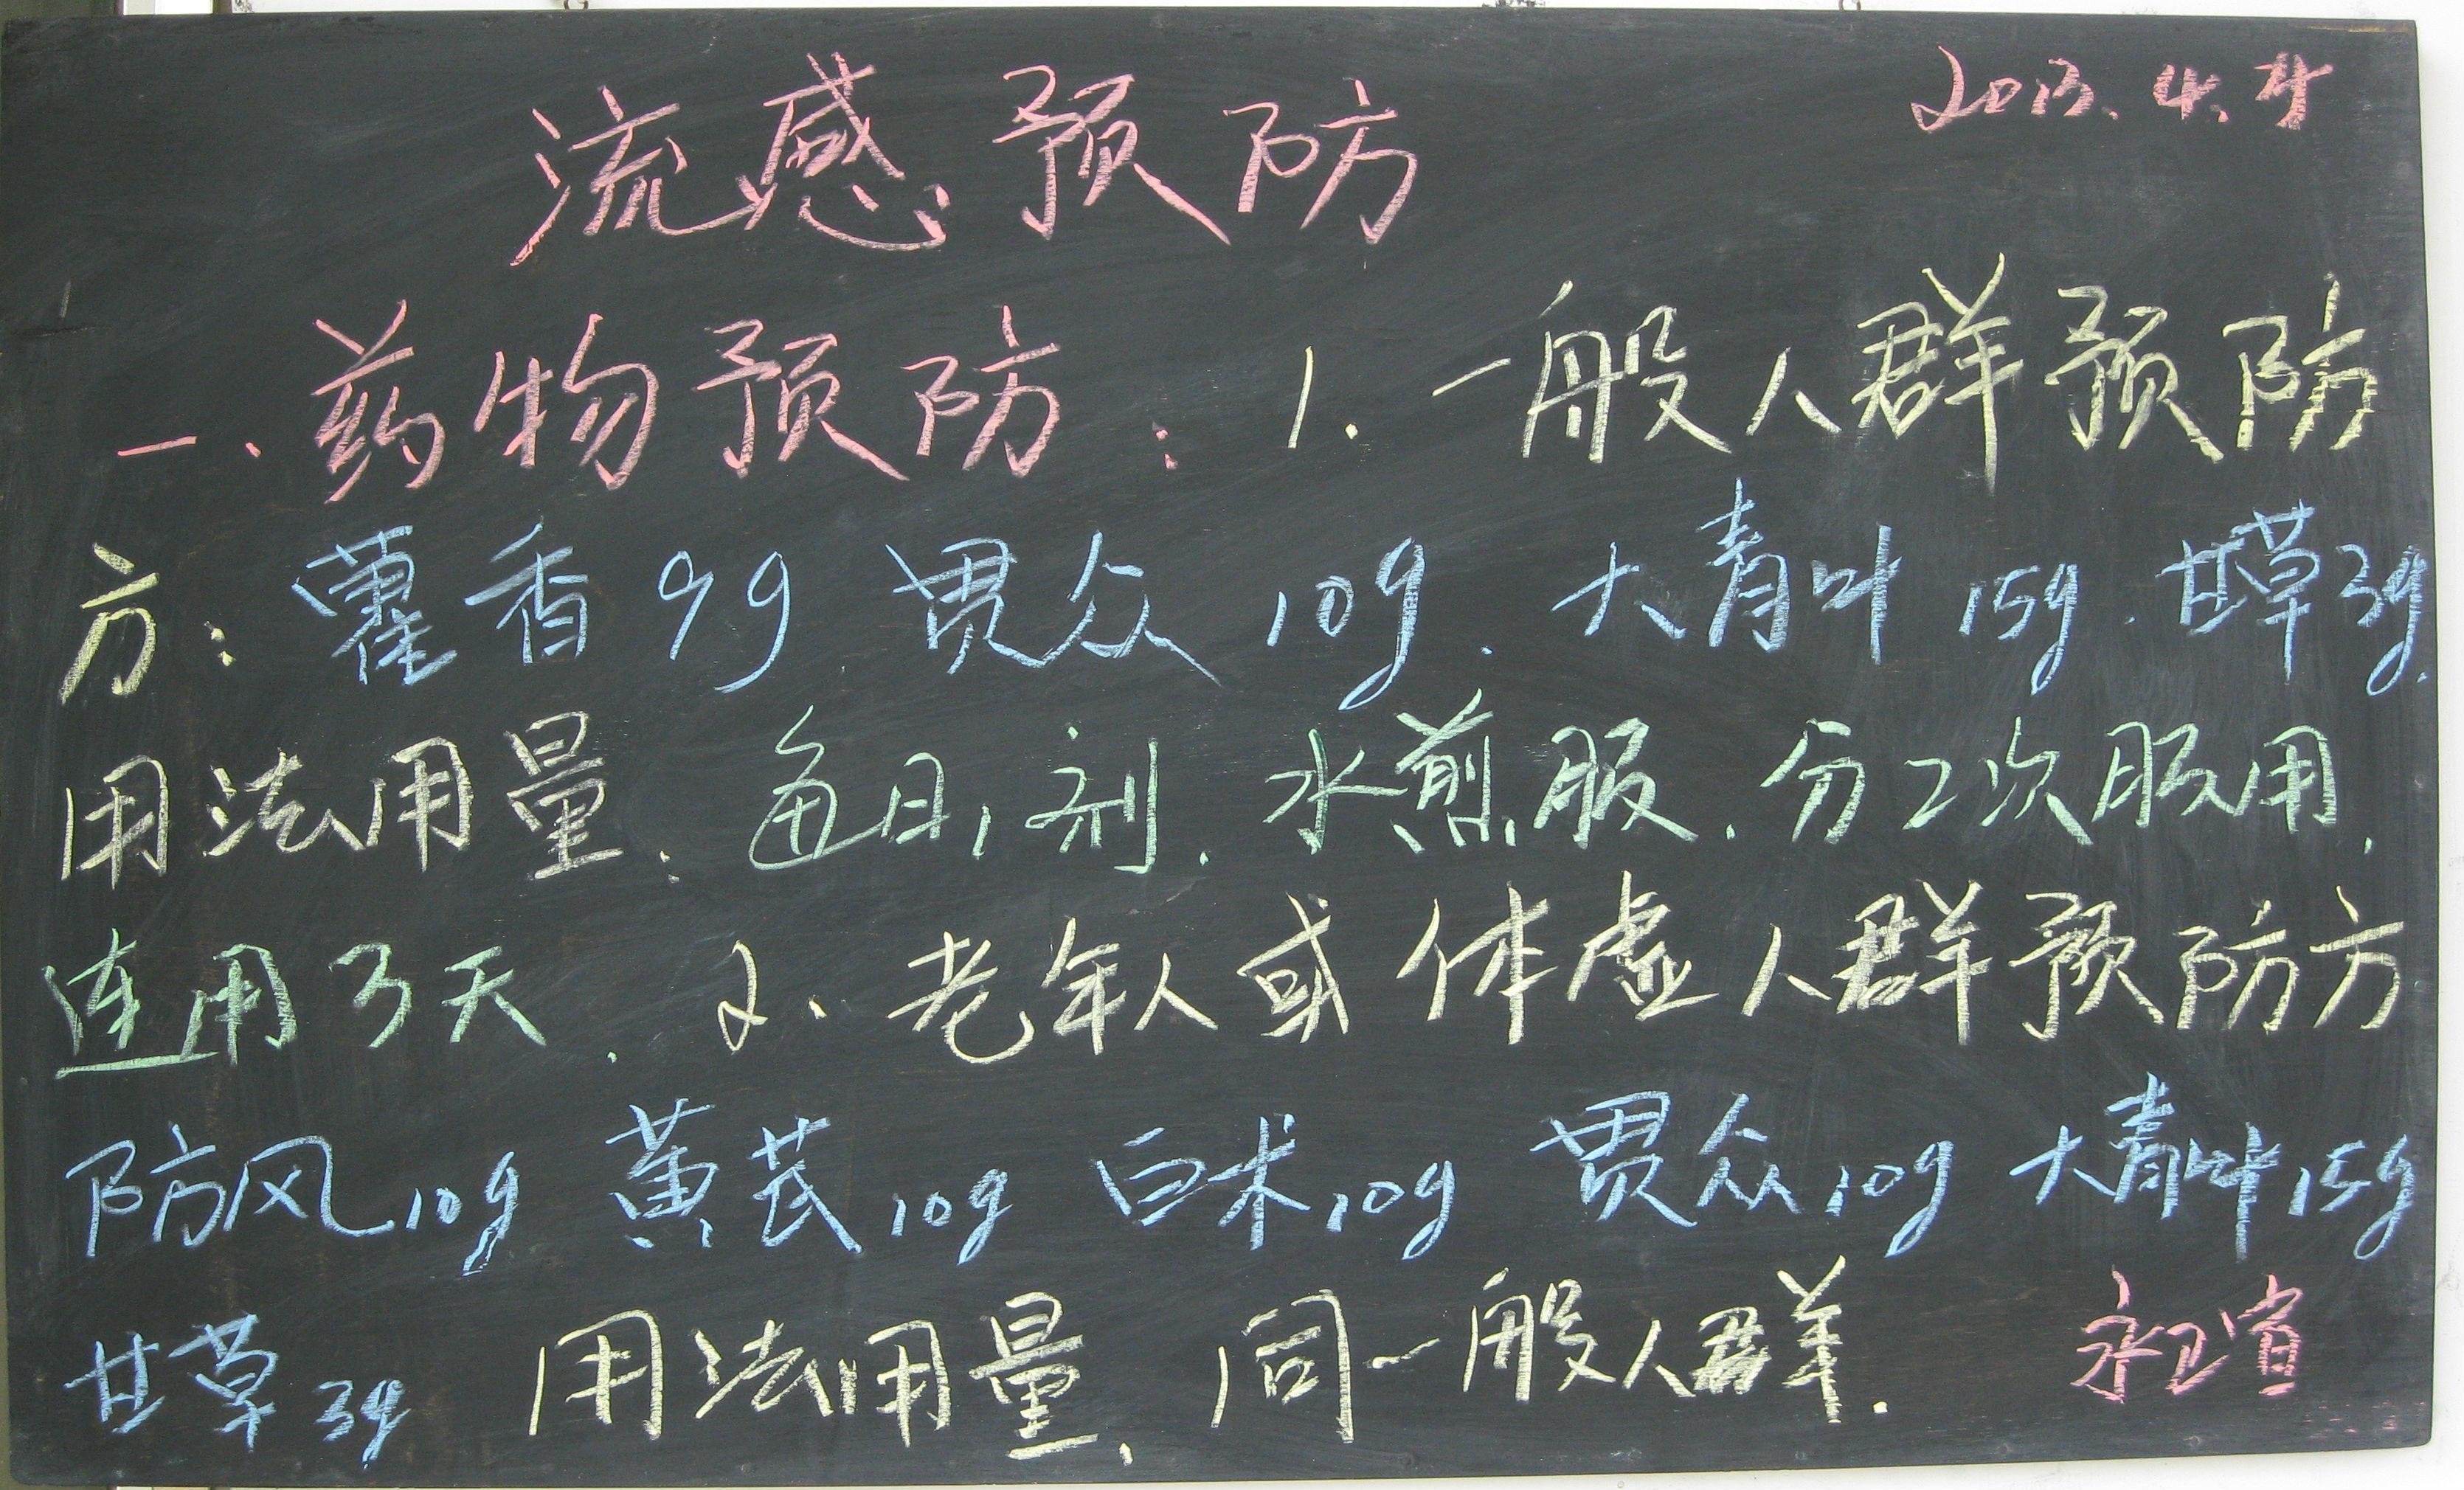 2013.4.
流感预防
一.药物预防:1.一般人群预防
方:藿香9g.贯众10g.大青叶15g.甘草3g.
用法用量:每日1剂.水煎服.分2次服用.
连用3天.2、老年人或体虚人群预防方
防风10g 黄芪10g 白术10g 贯众10g 大青叶15g
甘草3g 用法用量、同一般人群.